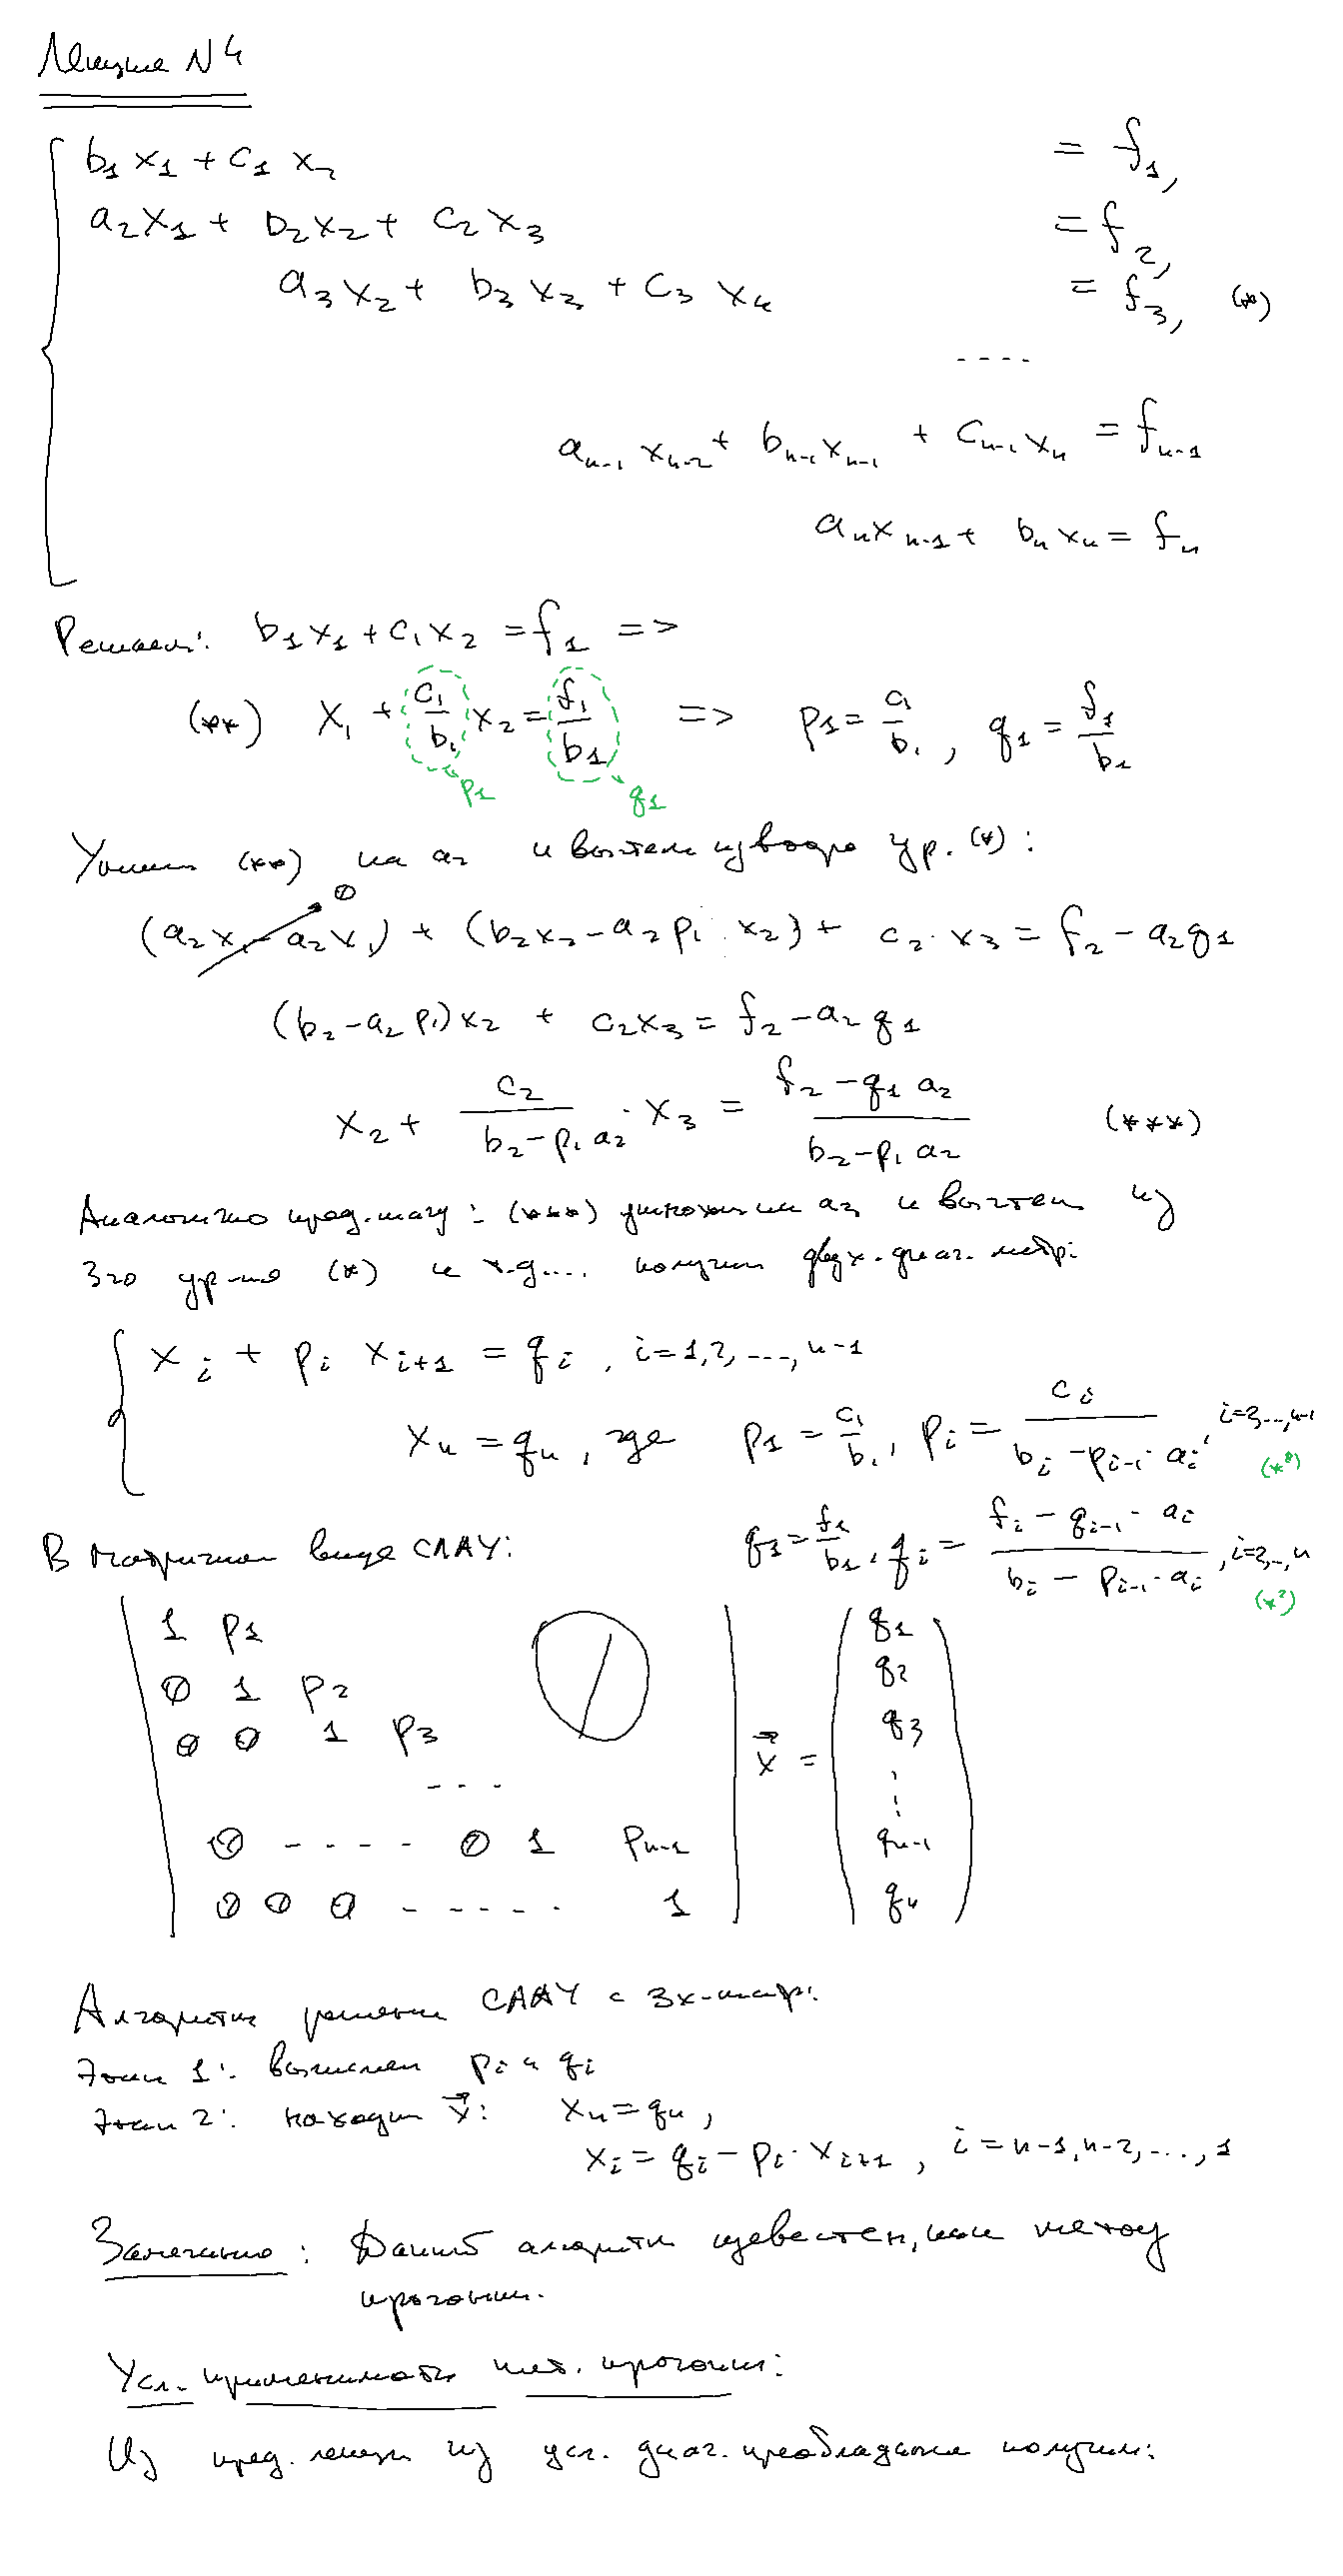 Лекция N4
b₁x₁ + c₁x₂ = f₁,
a₂x₁ + b₂x₂ + c₂x₃ = f₂,
a₃x₂ + b₃x₃ + c₃x₄ = f₃, (*)
....
aₙ₋₁xₙ₋₂ + bₙ₋₁xₙ₋₁ + cₙ₋₁xₙ = fₙ₋₁
aₙxₙ₋₁ + bₙxₙ = fₙ
Решаем: b₁x₁ + c₁x₂ = f₁ =>
(**) x₁ + c₁/b₁ x₂ = f₁/b₁ => p₁ = c₁/b₁, q₁ = f₁/b₁
p₁ q₁
Умнож (**) на a₂ и вычтем из второго ур. (*):
(a₂x₁ - a₂x₁) 0 + (b₂x₂ - a₂p₁·x₂) + c₂·x₃ = f₂ - a₂q₁
(b₂ - a₂p₁)x₂ + c₂x₃ = f₂ - a₂q₁
x₂ + c₂/(b₂ - p₁a₂) · x₃ = (f₂ - q₁a₂)/(b₂ - p₁a₂) (***)
Аналогично пред. шагу: (***) умножим на a₃ и вычтем из
3го ур-ия (*) и т.д.... получим двух.диаг. матр:
xᵢ + pᵢ xᵢ₊₁ = qᵢ, i=1,2,...,n-1
xₙ = qₙ, где p₁ = c₁/b₁, pᵢ = cᵢ/(bᵢ - pᵢ₋₁·aᵢ), i=2,...,n-1
q₁ = f₁/b₁, qᵢ = (fᵢ - qᵢ₋₁·aᵢ)/(bᵢ - pᵢ₋₁·aᵢ), i=2,..,n
(*²)
В матричном виде СЛАУ:
1 p₁ 0 q₁
0 1 p₂ q₂
0 0 1 p₃ q₃
... x⃗ = ⋮
0 - - - - 0 1 pₙ₋₁ qₙ₋₁
0 0 0 - - - - - 1 qₙ
Алгоритм решения СЛАУ с 3х-матр:
Этап 1: вычисляем pᵢ и qᵢ
Этап 2: находим x⃗: xₙ = qₙ,
xᵢ = qᵢ - pᵢ·xᵢ₊₁, i = n-1, n-2, ..., 1
Замечание: Данный алгоритм известен, как метод
прогонки.
Усл. применимости мет. прогонки:
Из пред. лекции из усл. диаг. преобладания получим: